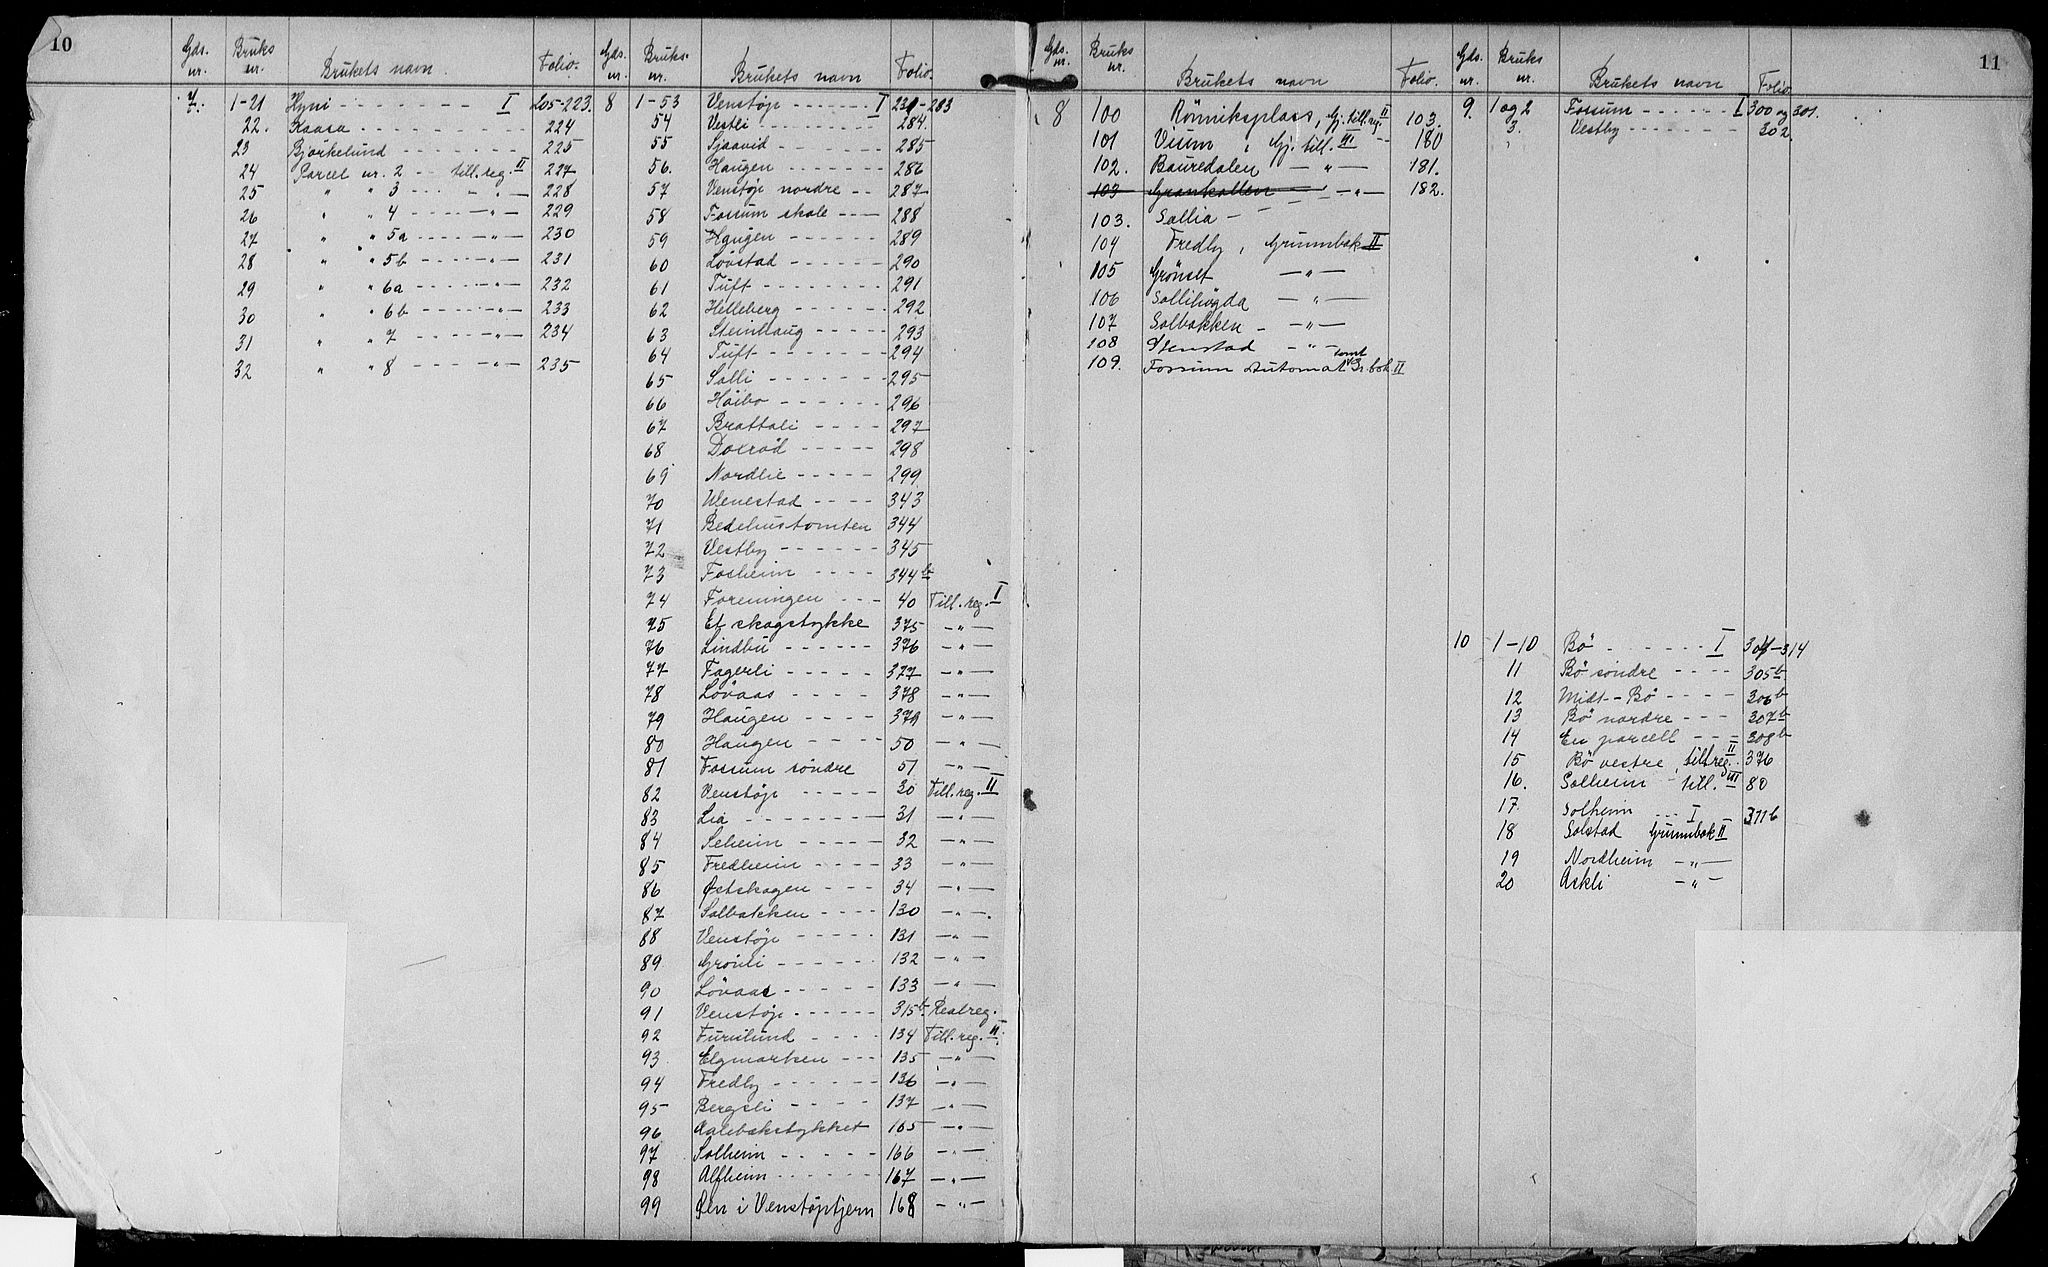 10
Gds. nr. Bruks nr. Brukets navn Folio.
7. 1-21 Hyni I 205-223.
22. Kaasa 224
23 Bjørkelund 225
24 Parcel nr. 2 till.reg. II 227
25 " " 3 " 228
26 " " 4 " 229
27 " " 5a " 230
28 " " 5b " 231
29 " " 6a " 232
30 " " 6b " 233
31 " " 7 " 234
32 " " 8 " 235
Gds. nr. Bruks nr. Brukets navn Folio.
8 1-53 Venstøp I 231-283
54 Vestli 284.
55 Sjaavid 285
56. Haugen 286
57 Venstøp nordre 287
58 Fossum skole 288
59 Haugen 289
60 Løvstad 290
61 Tuft 291
62 Helleberg 292
63 Steinhaug 293
64 Tuft 294
65 Solli 295
66 Høibo 296
67 Brattali 297
68 Doxrød 298
69 Nordlie 299
70 Wenestad 343
71 Bedehustomten 344
72 Vestby 345
73 Fosheim 344b
74 Foreningen 40 Till.reg. I
75 Et skogstykke 375 "
76 Lindbu 376 "
77 Fagerli 377 "
78 Løvaas 378 "
79 Haugen 379 "
80 Haugen 50 "
81 Fossum søndre 51 "
82 Venstøp 30 Till.reg. II
83 Lia 31 "
84 Seheim 32 "
85 Fredheim 33 "
86 Østskogen 34 "
87 Solbakken 130 "
88 Venstøp 131 "
89 Grønli 132 "
90 Løvaas 133 "
91 Venstøp 315b Realreg.
92 Furulund 134 Till.reg. II
93 Elgmarken 135 "
94 Fredby 136 "
95 Bergsli 137 "
96 Aalebækstykket 165 "
97 Solheim 166 "
98 Alfheim 167 "
99 Øen i Venstøptjern 168 "
11
Gds. nr. Bruks nr. Brukets navn Folio.
8 100 Rønniksplass, Gj. till.reg. II 103.
101 Vium, Gj. till. III 180
102. Bauredalen " 181.
103 Grankollen " 182.
103. Sollia
104 Fredly, Grunnbok II
105 Grønset "
106 Sollihøgda "
107 Solbakken "
108 Stenstad "
109. Fossum Automattomt Gr.bok II
Gds. nr. Bruks nr. Brukets navn Folio
9. 1 og 2 Fossum I 300 og 301.
3. Vestby 302.
10 1-10 Bø I 304-314
11 Bø søndre 305b
12 Midt-Bø 306b
13 Bø nordre 307b
14 En parcell 308b
15 Bø vestre, till.reg. II 376
16. Solheim till. III 80
17 Solheim I 311b
18 Solstad Grunnbok II
19 Nordheim "
20 Askli "